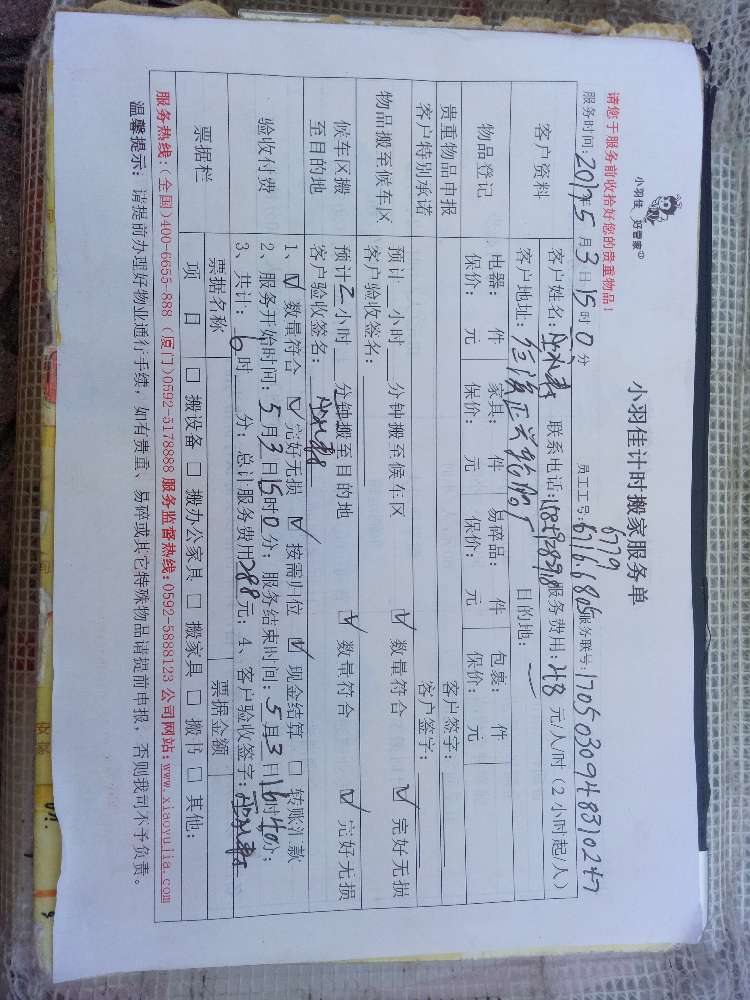 小羽佳 好管家
小羽佳计时搬家服务单
请您于服务前收拾好您的贵重物品！
6779
员工工号：6716.6805 服务联号：1705030948310247
服务时间：2017年5月3日15时0分
客户资料
客户姓名： 联系电话： 服务费用：48元/人/时（2小时起/人）
客户地址： 目的地：
物品登记
电器： 件 家具： 件 易碎品： 件 包裹： 件
保价： 元 保价： 元 保价： 元 保价： 元
贵重物品申报 客户签字：
客户特别承诺 客户签字：
物品搬至候车区
预计 小时 分钟搬至候车区 ☑ 数量符合 ☑ 完好无损
客户验收签名：
候车区搬至目的地
预计2小时 分钟搬至目的地 ☑ 数量符合 ☑ 完好无损
客户验收签名：
验收付费
1、☑ 数量符合 ☑ 完好无损 ☑ 按需归位 ☑ 现金结算 □ 转账汇款
2、服务开始时间：5月3日15时0分；服务结束时间：5月3日16时40分；
3、共计：6时 分；总计服务费用288元；4、客户验收签字：
票据栏
票据名称 票据金额
项目 □ 搬设备 □ 搬办公家具 □ 搬家具 □ 搬书 □ 其他：
服务热线：(全国)400-6655-888 (厦门)0592-5178888 服务监督热线：0592-5888123 公司网站：www.xiaoyujia.com
温馨提示：请提前办理好物业通行手续，如有贵重、易碎或其它特殊物品请提前申报，否则我司不予负责。